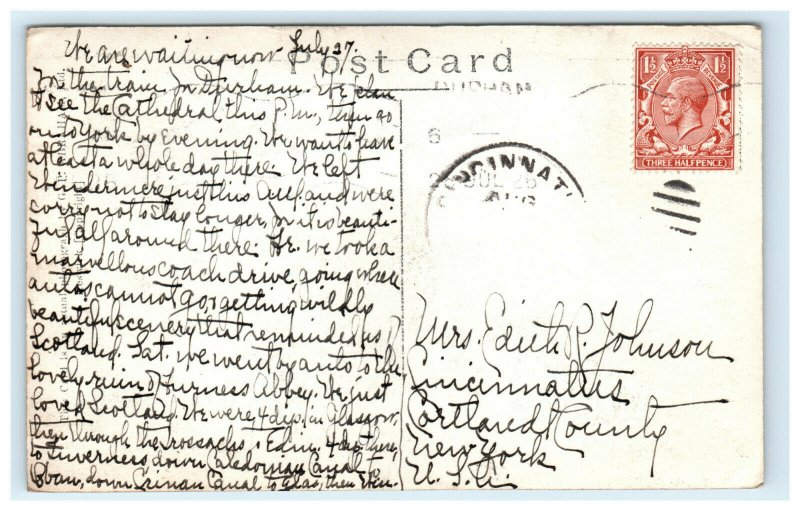 We are waiting now July 27.
Post Card
for the train in Durham. We plan
to see the Cathedral this P.M., then go
on to York by evening. We want to have
at least a whole day there. We left
Windermere just this A.M. and were
sorry not to stay longer, for it is beauti-
ful all around there. We took a
marvellous coach drive, going where
autos cannot go, getting wildly
beautiful scenery that reminded us of
Scotland. Sat. we went by auto to the
lovely ruin of Furness Abbey. We just
loved Scotland. We were 4 days in Glasgow,
then through the Trossachs, Edin. 4 days there,
to Inverness down Caledonian Canal to
Oban, down Crinan Canal to Glas, then Win-
DURHAM
6
CINCINNAT
1½ 1½
THREE HALFPENCE
Mrs. Edith R. Johnson
Cincinnatus
Cortland County
New York
U.S.A.